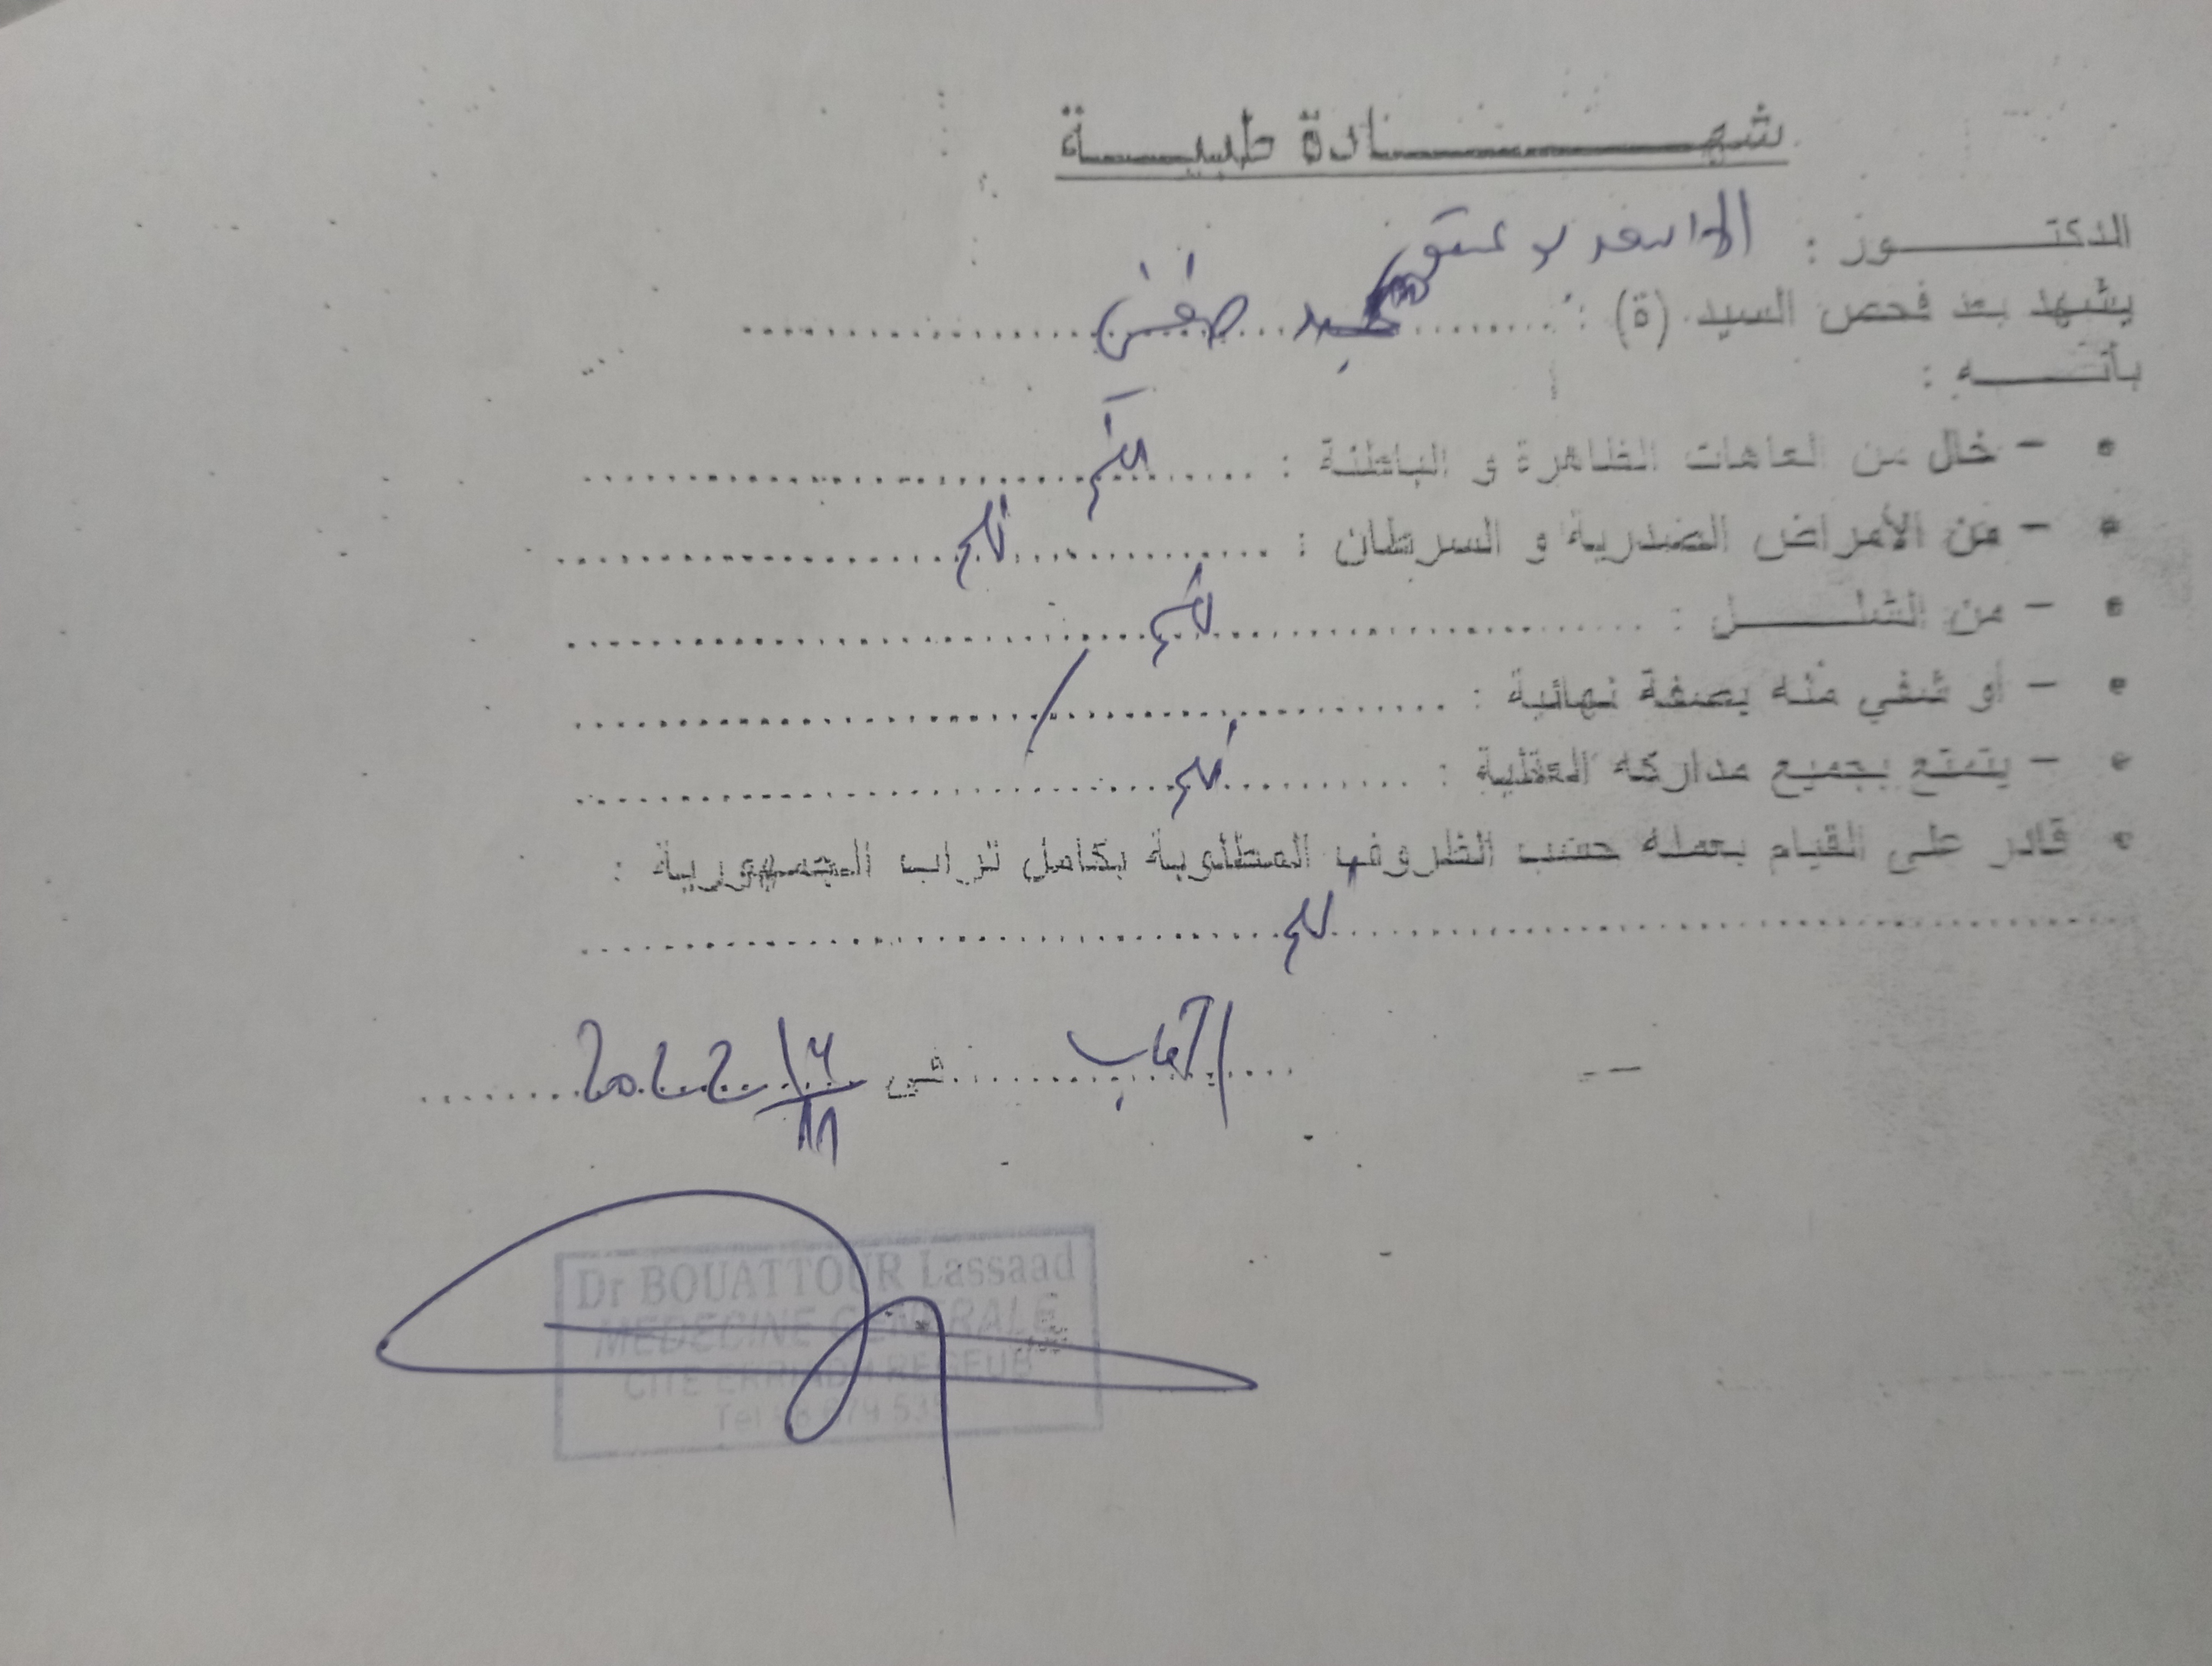 شهادة طبية
الدكتور : الاسعد بوعتور
يشهد بعد فحص السيد (ة) :
بأنه :
• - خال من العاهات الظاهرة و الباطنة : نعم
• - من الأمراض الصدرية و السرطان : نعم
• - من الشلل : نعم
• - أو شفي منه بصفة نهائية : /
• - يتمتع بجميع مداركه العقلية : نعم
• قادر على القيام بعمله حسب الظروف المطلوبة بكامل تراب الجمهورية :
نعم
الرقاب في 2022
Dr BOUATTOUR Lassaad
MEDECINE GENERALE
CITE ERRIADH REGEUB
Tel